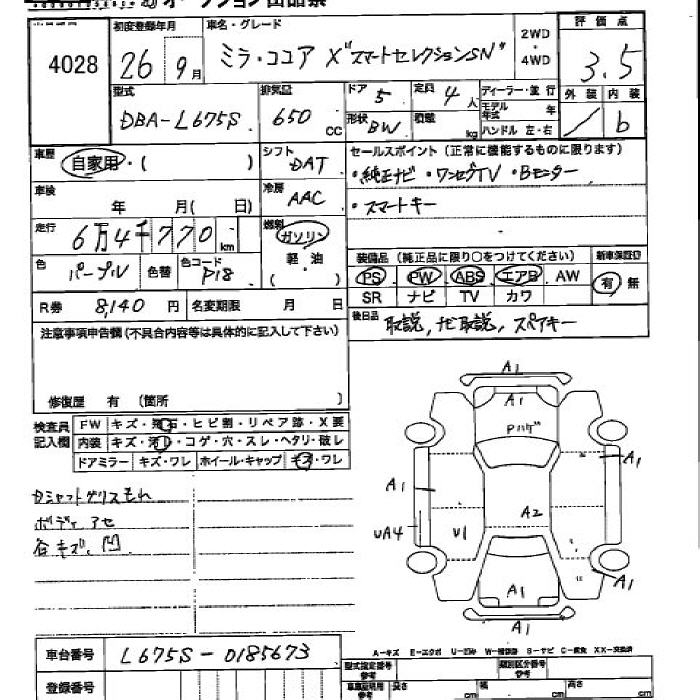 オークション出品票
4028
初度登録年月 26年 9月
車名・グレード ミラ・ココア X"スマートセレクションSN"
2WD・4WD
評価点 3.5
型式 DBA-L675S
排気量 650 CC
ドア 5
形状 BW
定員 4人
積載 kg
ディーラー・並行
モデル年式 年
ハンドル 左・右
外装 内装 b
車歴 自家用・( )
シフト DAT
セールスポイント (正常に機能するものに限ります)
・純正ナビ・ワンセグTV・Bモニター
・スマートキー
車検 年 月( 日)
冷房 AAC
走行 6万4千770 km
燃料 ガソリン 軽・油 ( )
色 パープル 色替 色コード P18
装備品 (純正品に限り○をつけてください) 新車保証書
PS PW ABS エアB AW 有 無
SR ナビ TV カワ
R券 8,140 円 名変期限 月 日
後日品 取説, ナビ取説, スペアキー
注意事項申告欄 (不具合内容等は具体的に記入して下さい)
修復歴 有 (箇所 )
検査員記入欄
FW キズ・飛石・ヒビ割・リペア跡・X要
内装 キズ・汚レ・コゲ・穴・スレ・ヘタリ・破レ
ドアミラー キズ・ワレ ホイール・キャップ キズ・ワレ
Dシャフトグリスもれ
ボディ アセ
各キズ、凹
A1
A1
Pハゲ
A1
A1
A2
UA4
U1
A1
A1
A1
A-キズ E-エクボ U-凹み W-補修跡 S-サビ C-腐食 XX-交換済
車台番号 L675S-0185673
登録番号
型式指定番号 参考
類別区分番号 参考
長さ cm 幅 cm 高さ cm